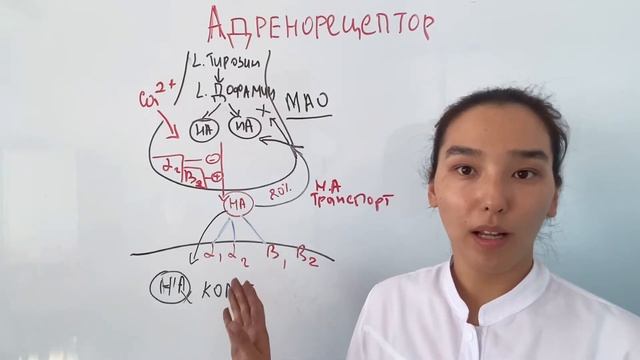 АДРЕНОРЕЦЕПТОР
L. ТИРОЗИН
L. ДОФАМИН
Ca2+
МАО
НА НА
α2 −
B2 +
НА
20%
Н.А
ТРАНСПОРТ
α1 α2 B1 B2
Н/А